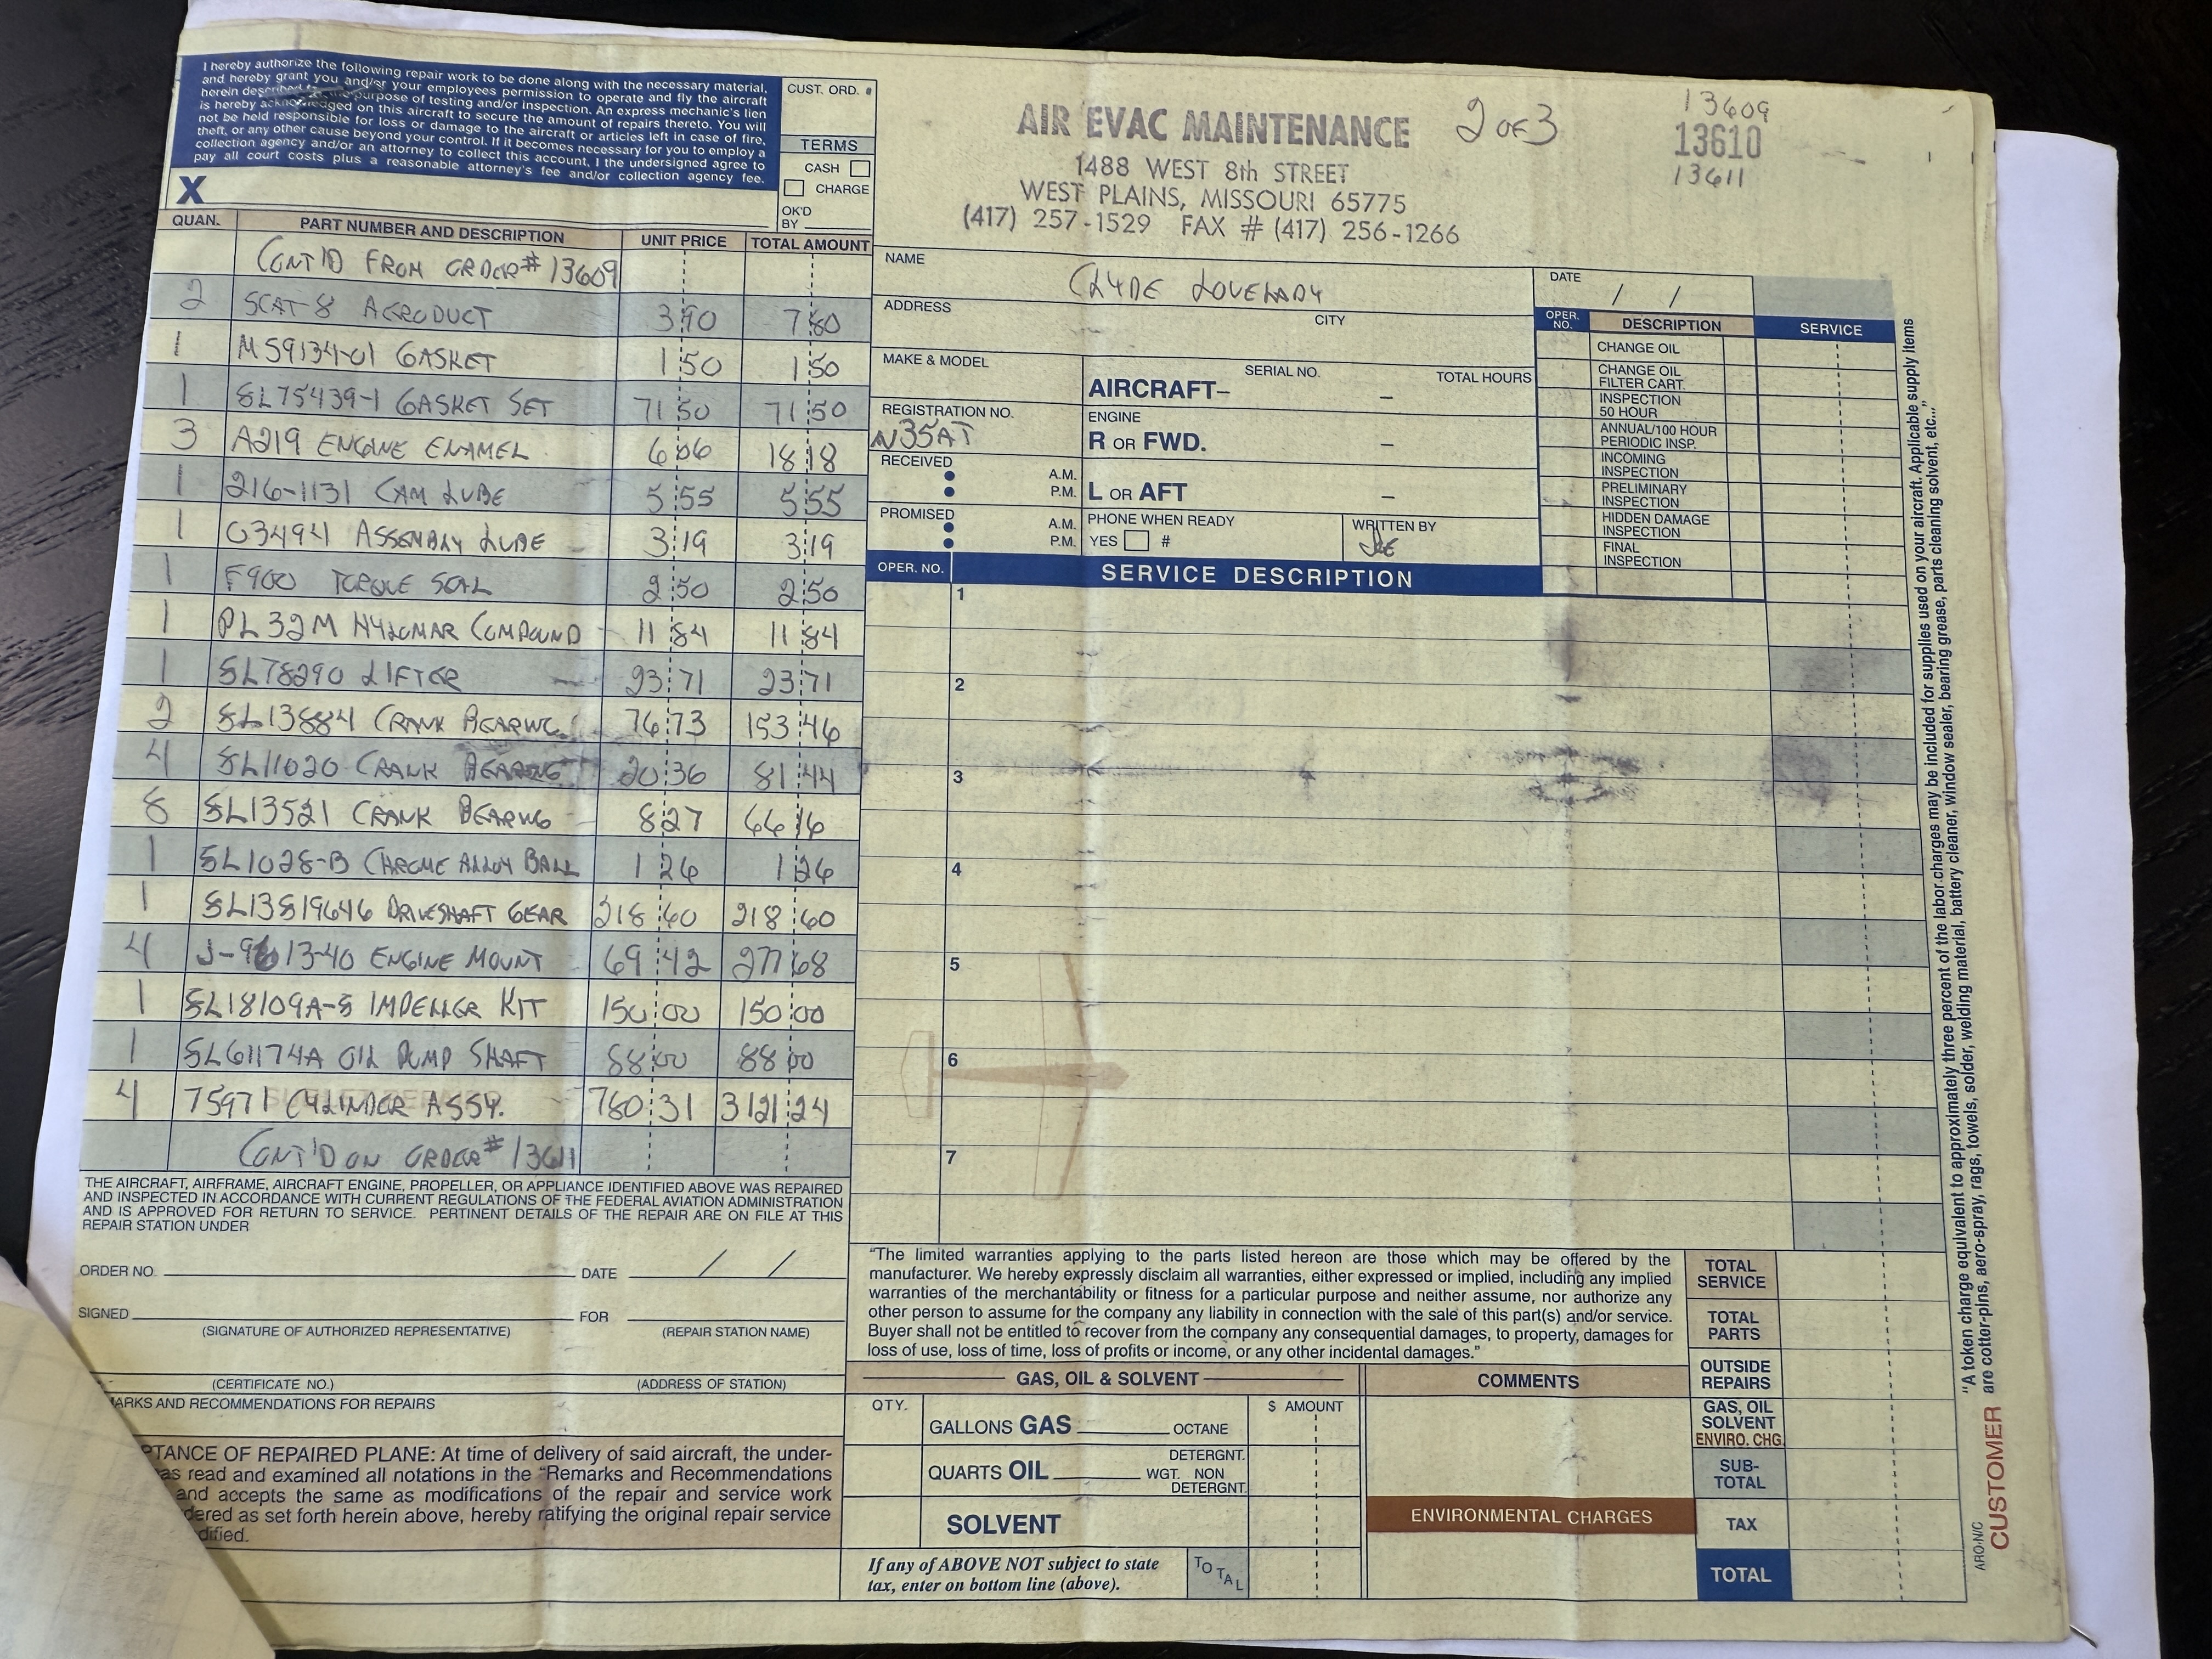 I hereby authorize the following repair work to be done along with the necessary material,
and hereby grant you and/or your employees permission to operate and fly the aircraft
herein described for the purpose of testing and/or inspection. An express mechanic's lien
is hereby acknowledged on this aircraft to secure the amount of repairs thereto. You will
not be held responsible for loss or damage to the aircraft or articles left in case of fire,
theft, or any other cause beyond your control. If it becomes necessary for you to employ a
collection agency and/or an attorney to collect this account, I the undersigned agree to
pay all court costs plus a reasonable attorney's fee and/or collection agency fee.
X
CUST. ORD. #
TERMS
CASH
CHARGE
OK'D
BY
AIR EVAC MAINTENANCE
1488 WEST 8th STREET
WEST PLAINS, MISSOURI 65775
(417) 257-1529 FAX # (417) 256-1266
2 OF 3
13609
13610
13611
QUAN. PART NUMBER AND DESCRIPTION UNIT PRICE TOTAL AMOUNT
CONT'D FROM ORDER# 13609
2 SCAT-8 AERODUCT 3 90 7 80
1 MS9134-01 GASKET 1 50 1 50
1 SL75439-1 GASKET SET 71 50 71 50
3 A219 ENGINE ENAMEL 6 06 18 18
1 216-1131 CAM LUBE 5 55 5 55
1 03494 ASSEMBLY LUBE 3 19 3 19
1 F900 TORQUE SEAL 2 50 2 50
1 PL32M HYLOMAR COMPOUND 11 84 11 84
1 SL78290 LIFTER 23 71 23 71
2 SL13884 CRANK BEARING 76 73 153 46
4 SL11020 CRANK BEARING 20 36 81 44
8 SL13521 CRANK BEARING 8 27 66 16
1 SL1028-B CHROME ALLOY BALL 1 26 1 26
1 SL13S19646 DRIVESHAFT GEAR 218 60 218 60
4 J-9613-40 ENGINE MOUNT 69 42 277 68
1 SL18109A-S IMPELLER KIT 150 00 150 00
1 SL61174A OIL PUMP SHAFT 88 00 88 00
4 75971 CYLINDER ASSY. 780 31 3121 24
CONT'D ON ORDER# 13611
NAME CLYDE LOVELADY
DATE / /
ADDRESS
CITY
MAKE & MODEL
AIRCRAFT–
SERIAL NO.
TOTAL HOURS
–
REGISTRATION NO.
N35AT
ENGINE
R OR FWD.
–
RECEIVED
A.M.
P.M.
L OR AFT
–
PROMISED
A.M.
P.M.
PHONE WHEN READY
YES #
WRITTEN BY
JOE
OPER. NO. DESCRIPTION SERVICE
CHANGE OIL
CHANGE OIL
FILTER CART.
INSPECTION
50 HOUR
ANNUAL/100 HOUR
PERIODIC INSP.
INCOMING
INSPECTION
PRELIMINARY
INSPECTION
HIDDEN DAMAGE
INSPECTION
FINAL
INSPECTION
OPER. NO. SERVICE DESCRIPTION
1
2
3
4
5
6
7
THE AIRCRAFT, AIRFRAME, AIRCRAFT ENGINE, PROPELLER, OR APPLIANCE IDENTIFIED ABOVE WAS REPAIRED
AND INSPECTED IN ACCORDANCE WITH CURRENT REGULATIONS OF THE FEDERAL AVIATION ADMINISTRATION
AND IS APPROVED FOR RETURN TO SERVICE. PERTINENT DETAILS OF THE REPAIR ARE ON FILE AT THIS
REPAIR STATION UNDER
ORDER NO. DATE / /
SIGNED FOR
(SIGNATURE OF AUTHORIZED REPRESENTATIVE) (REPAIR STATION NAME)
(CERTIFICATE NO.) (ADDRESS OF STATION)
ARKS AND RECOMMENDATIONS FOR REPAIRS
PTANCE OF REPAIRED PLANE: At time of delivery of said aircraft, the under-
as read and examined all notations in the "Remarks and Recommendations
and accepts the same as modifications of the repair and service work
dered as set forth herein above, hereby ratifying the original repair service
dified.
"The limited warranties applying to the parts listed hereon are those which may be offered by the
manufacturer. We hereby expressly disclaim all warranties, either expressed or implied, including any implied
warranties of the merchantability or fitness for a particular purpose and neither assume, nor authorize any
other person to assume for the company any liability in connection with the sale of this part(s) and/or service.
Buyer shall not be entitled to recover from the company any consequential damages, to property, damages for
loss of use, loss of time, loss of profits or income, or any other incidental damages."
GAS, OIL & SOLVENT
QTY. $ AMOUNT
GALLONS GAS OCTANE
QUARTS OIL DETERGNT.
WGT. NON
DETERGNT.
SOLVENT
If any of ABOVE NOT subject to state
tax, enter on bottom line (above).
TOTAL
COMMENTS
ENVIRONMENTAL CHARGES
TOTAL
SERVICE
TOTAL
PARTS
OUTSIDE
REPAIRS
GAS, OIL
SOLVENT
ENVIRO. CHG.
SUB-
TOTAL
TAX
TOTAL
"A token charge equivalent to approximately three percent of the labor charges may be included for supplies used on your aircraft. Applicable supply items
are cotter-pins, aero-spray, rags, towels, solder, welding material, battery cleaner, window sealer, bearing grease, parts cleaning solvent, etc..."
ARO-N/C
CUSTOMER